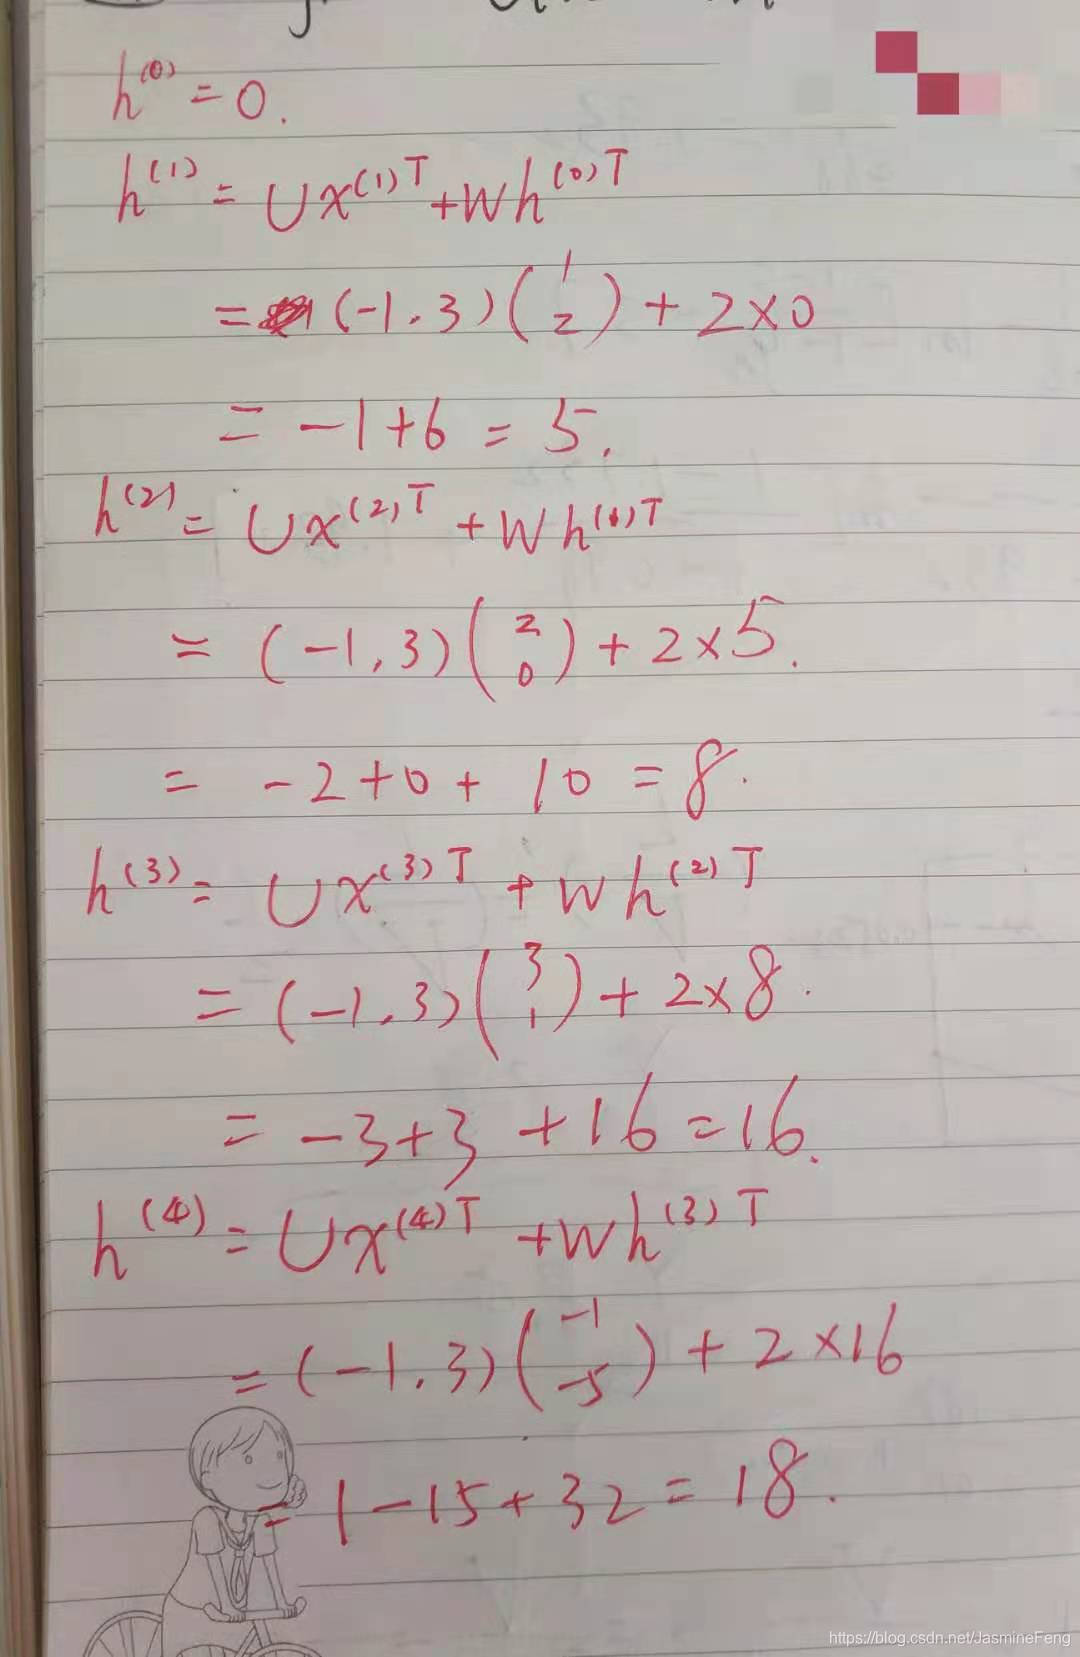 h^(0) = 0.
h^(1) = Ux^(1)T + Wh^(0)T
= (-1, 3) (1 2) + 2×0
= -1+6 = 5.
h^(2) = Ux^(2)T + Wh^(1)T
= (-1, 3) (2 0) + 2×5.
= -2+0+10 = 8.
h^(3) = Ux^(3)T + Wh^(2)T
= (-1, 3) (3 1) + 2×8.
= -3+3+16 = 16.
h^(4) = Ux^(4)T + Wh^(3)T
= (-1, 3) (-1 -5) + 2×16
= 1-15+32 = 18.
https://blog.csdn.net/JasmineFeng